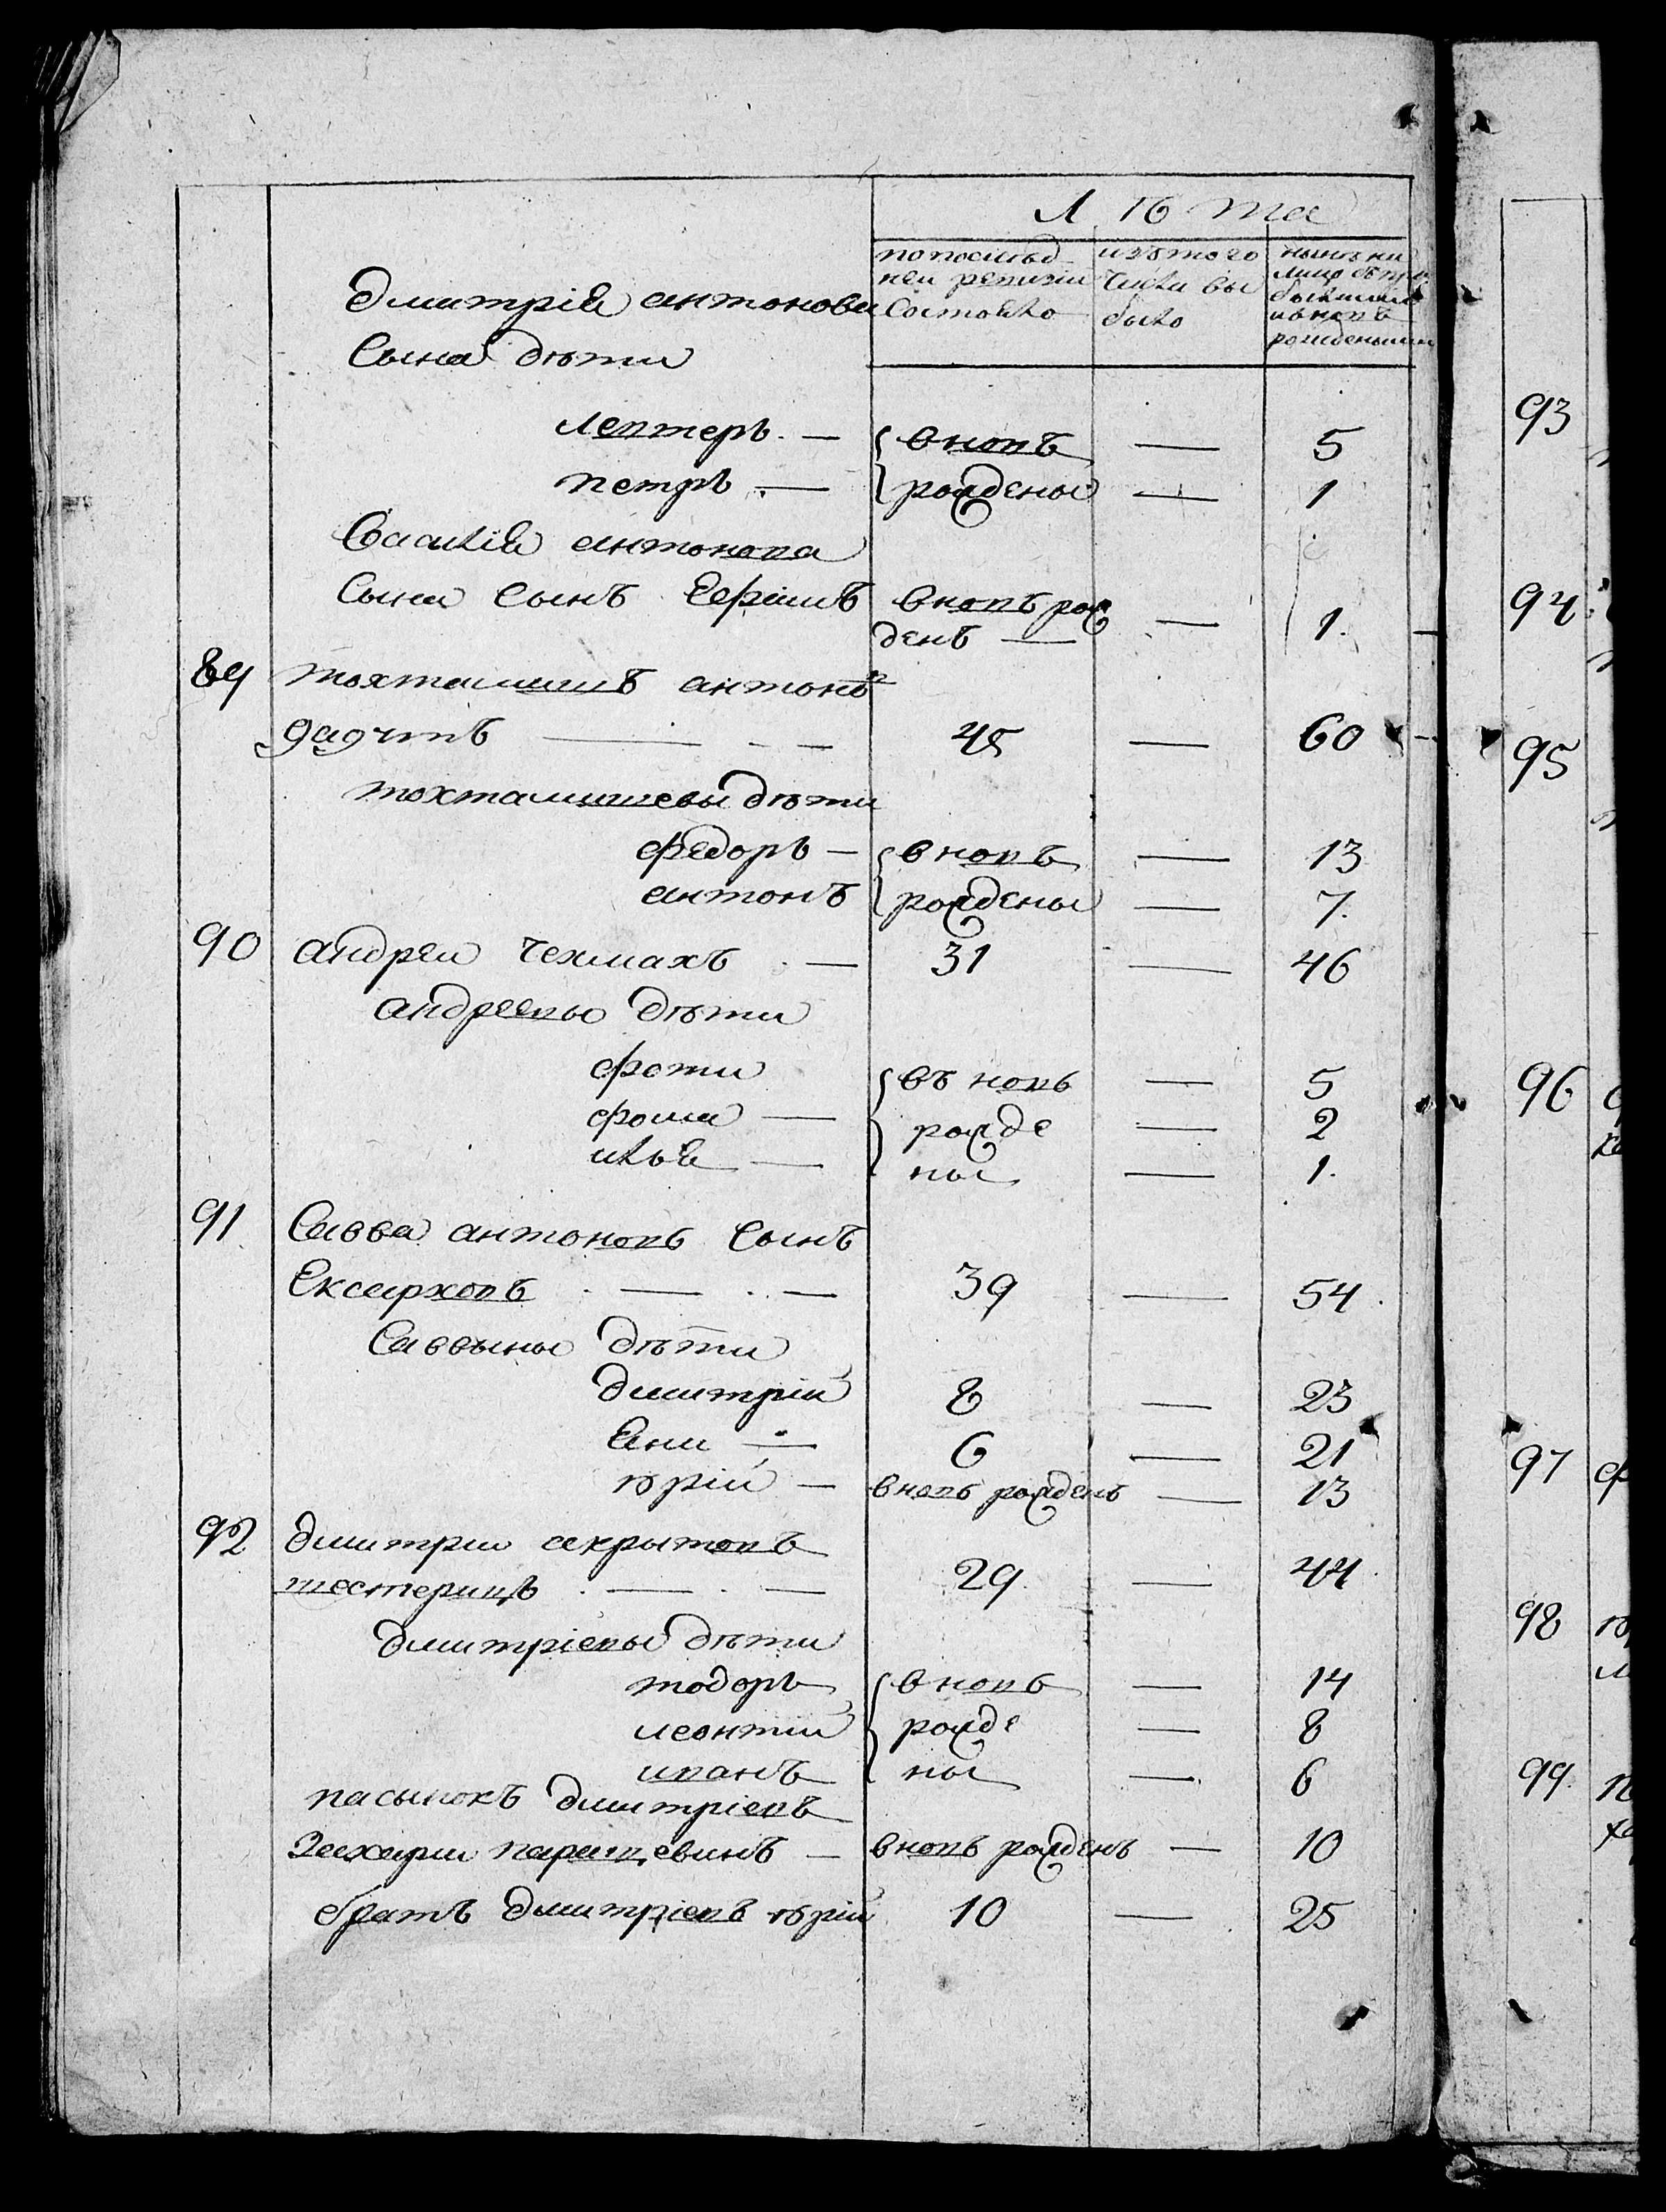 Лѣта
по последней ревизіи состояло
изъ того числа выбыло
нынѣ на лицо съ прибылыми и вновь рожденными
Дмитрія антонова
Сына дѣти
лефтеръ — вновь — 5
петръ — рождены — 1
Василія антонова
Сына сынъ Ефимъ вновь рож
денъ — — 1.
89 тохтамишъ антонъ
— 45 — 60
тохтамишевы дѣти
федоръ — вновь — 13
антонъ рождены — 7.
90 андреи чехмахъ — 31 — 46
андреевы дѣти
фоти въ новь — 5
фома — рожде — 2
илья — ны — 1.
91 Савва антоновъ сынъ
Ексарховъ — — 39 — 54.
Саввины дѣти
дмитрій 8 — 23
Яни — 6 — 21
юрій — вновь рожденъ — 13
92 дмитрии акрытовъ
шестерицъ — — 29 — 44.
дмитріевы дѣти
тодоръ вновь — 14
леонтій рожде — 8
иванъ ны — 6
пасынокъ дмитріевъ
Захарии — вновь рожденъ — 10
братъ дмитріевъ юрій 10 — 25
93
94
95
96
97
98
99